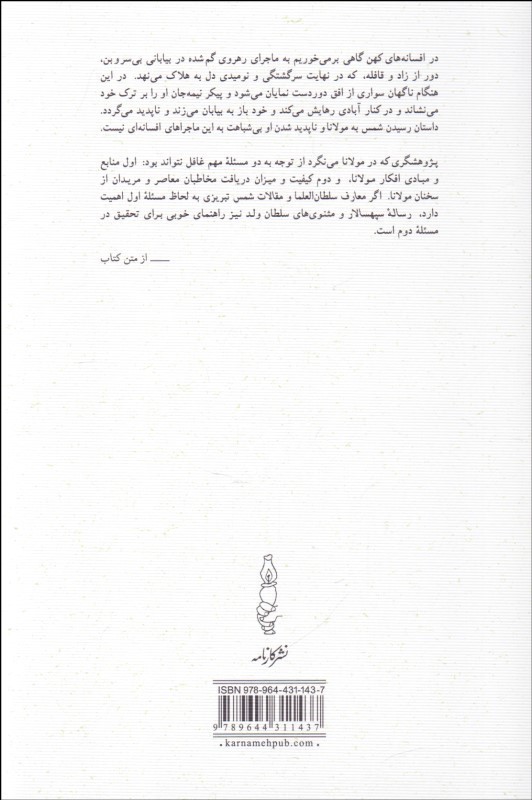 در افسانه‌های کهن گاهی برمی‌خوریم به ماجرای رهروی گم‌شده در بیابانی بی‌سروبن،
دور از زاد و قافله، که در نهایت سرگشتگی و نومیدی دل به هلاک می‌نهد. در این
هنگام ناگهان سواری از افق دوردست نمایان می‌شود و پیکر نیمه‌جان او را بر ترک خود
می‌نشاند و در کنار آبادی رهایش می‌کند و خود باز به بیابان می‌زند و ناپدید می‌گردد.
داستان رسیدن شمس به مولانا و ناپدید شدن او بی‌شباهت به این ماجراهای افسانه‌ای نیست.
پژوهشگری که در مولانا می‌نگرد از توجه به دو مسئلهٔ مهم غافل نتواند بود: اول منابع
و مبادی افکار مولانا، و دوم کیفیت و میزان دریافت مخاطبان معاصر و مریدان از
سخنان مولانا. اگر معارف سلطان‌العلما و مقالات شمس تبریزی به لحاظ مسئلهٔ اول اهمیت
دارد، رسالهٔ سپهسالار و مثنوی‌های سلطان ولد نیز راهنمای خوبی برای تحقیق در
مسئلهٔ دوم است.
ـــــ از متن کتاب
نشر کارنامه
ISBN 978-964-431-143-7
9 789644 311437
. karnamehpub.com .